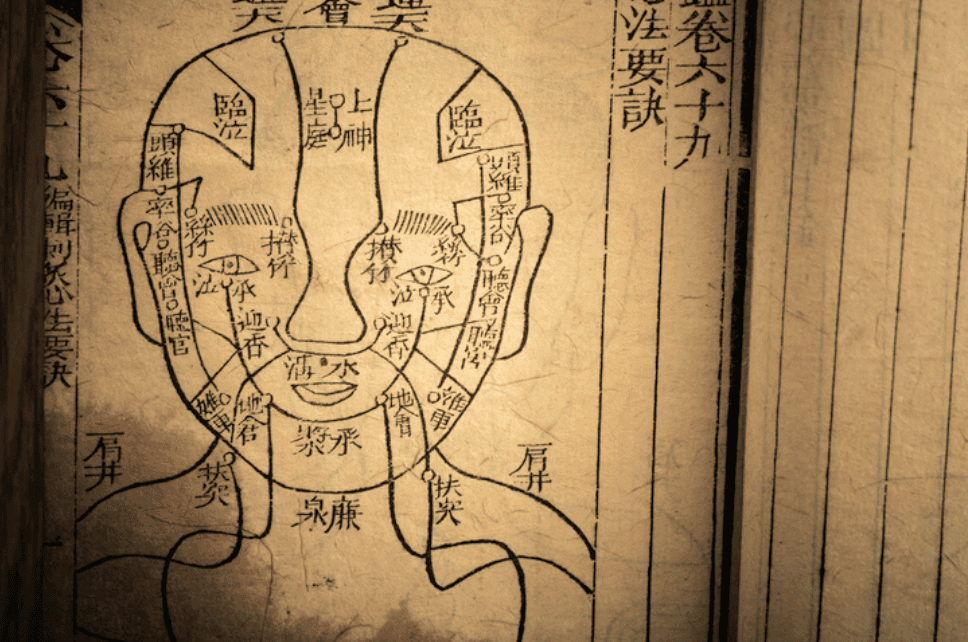 鑑卷六十九
心法要訣
通天
會
通天
臨泣
上星
神庭
臨泣
頭維
頭維
率谷
率谷
絲竹
攅竹
攅竹
聽會
聽會
承泣
承泣
聽宮
迎香
迎香
水溝
地倉
地倉
承漿
肩井
肩井
扶突
扶突
廉泉
卷六十九
編輯刺灸心法要訣
一